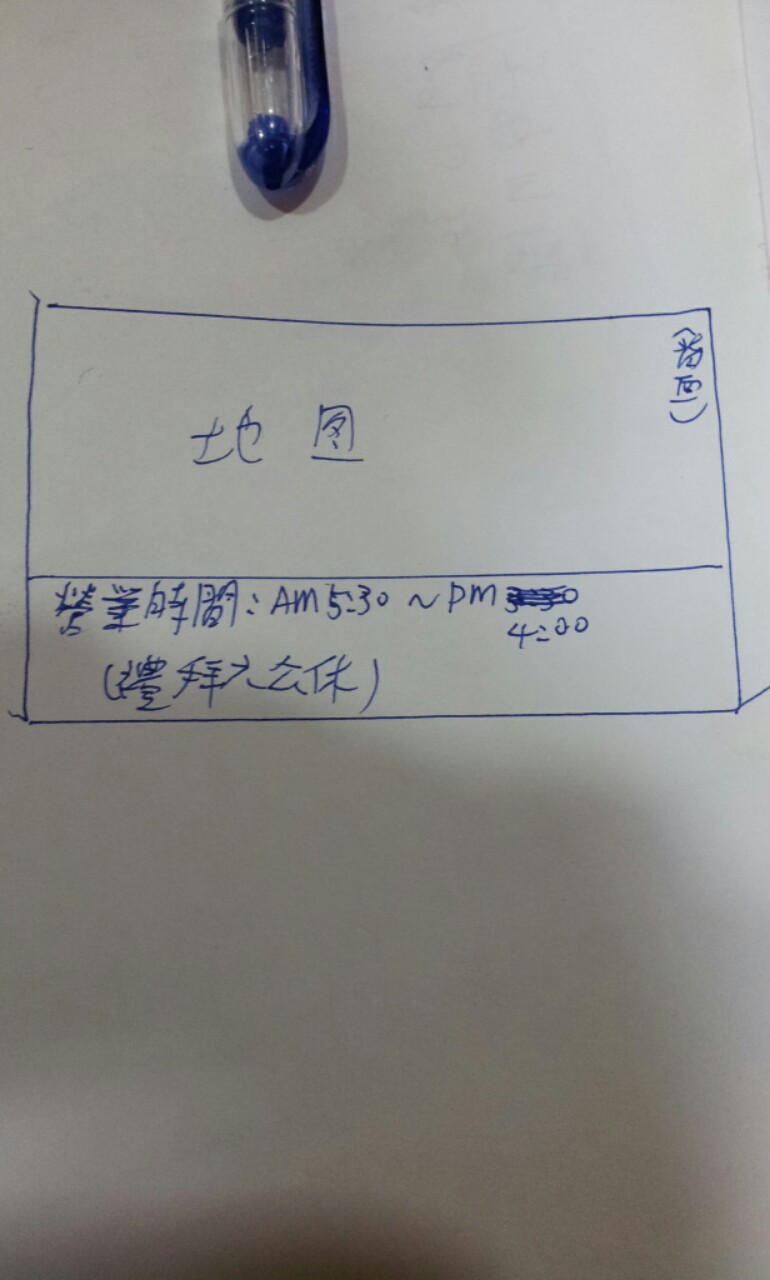 (背面)
地图
營業時間:AM5:30~PM
4:00
(禮拜六公休)